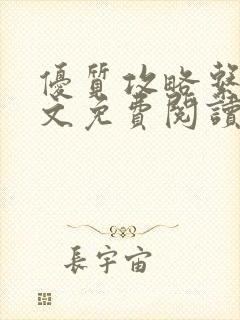 優質攻略繫
文免費閱讀
長宇宙